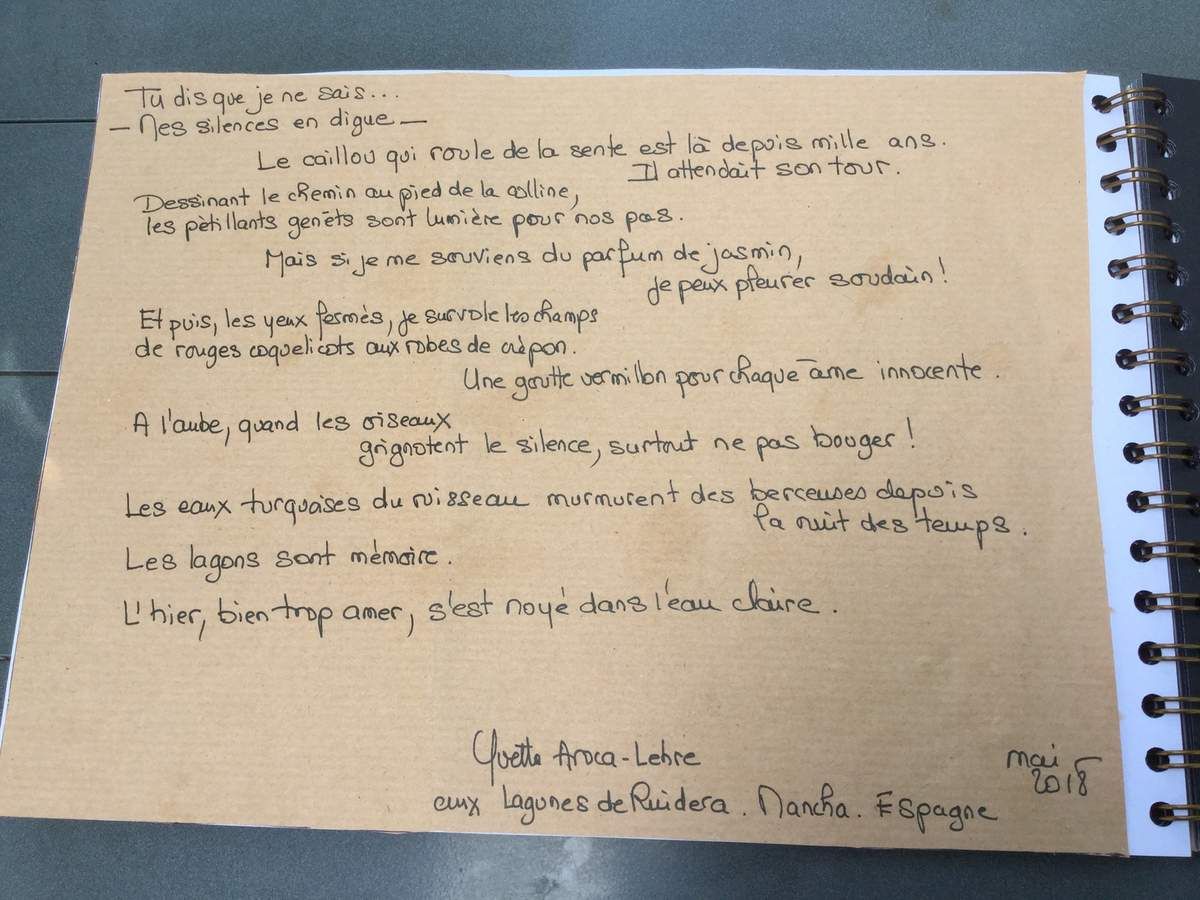 Tu dis que je ne sais...
- Mes silences en digue -
Le caillou qui roule de la sente est là depuis mille ans.
Il attendait son tour.
Dessinant le chemin au pied de la colline,
les pètillants genêts sont lumière pour nos pas.
Mais si je me souviens du parfum de jasmin,
je peux pleurer soudain !
Et puis, les yeux fermés, je survole les champs
de rouges coquelicots aux robes de crèpon.
Une goutte vermillon pour chaque âme innocente.
A l'aube, quand les oiseaux
grignotent le silence, surtout ne pas bouger !
Les eaux turquoises du ruisseau murmurent des berceuses depuis
la nuit des temps.
Les lagons sont mémoire.
L'hier, bien trop amer, s'est noyé dans l'eau claire.
Yvette Aroca-Lehre
mai
2018
aux Lagunes de Ruidera. Mancha. Espagne